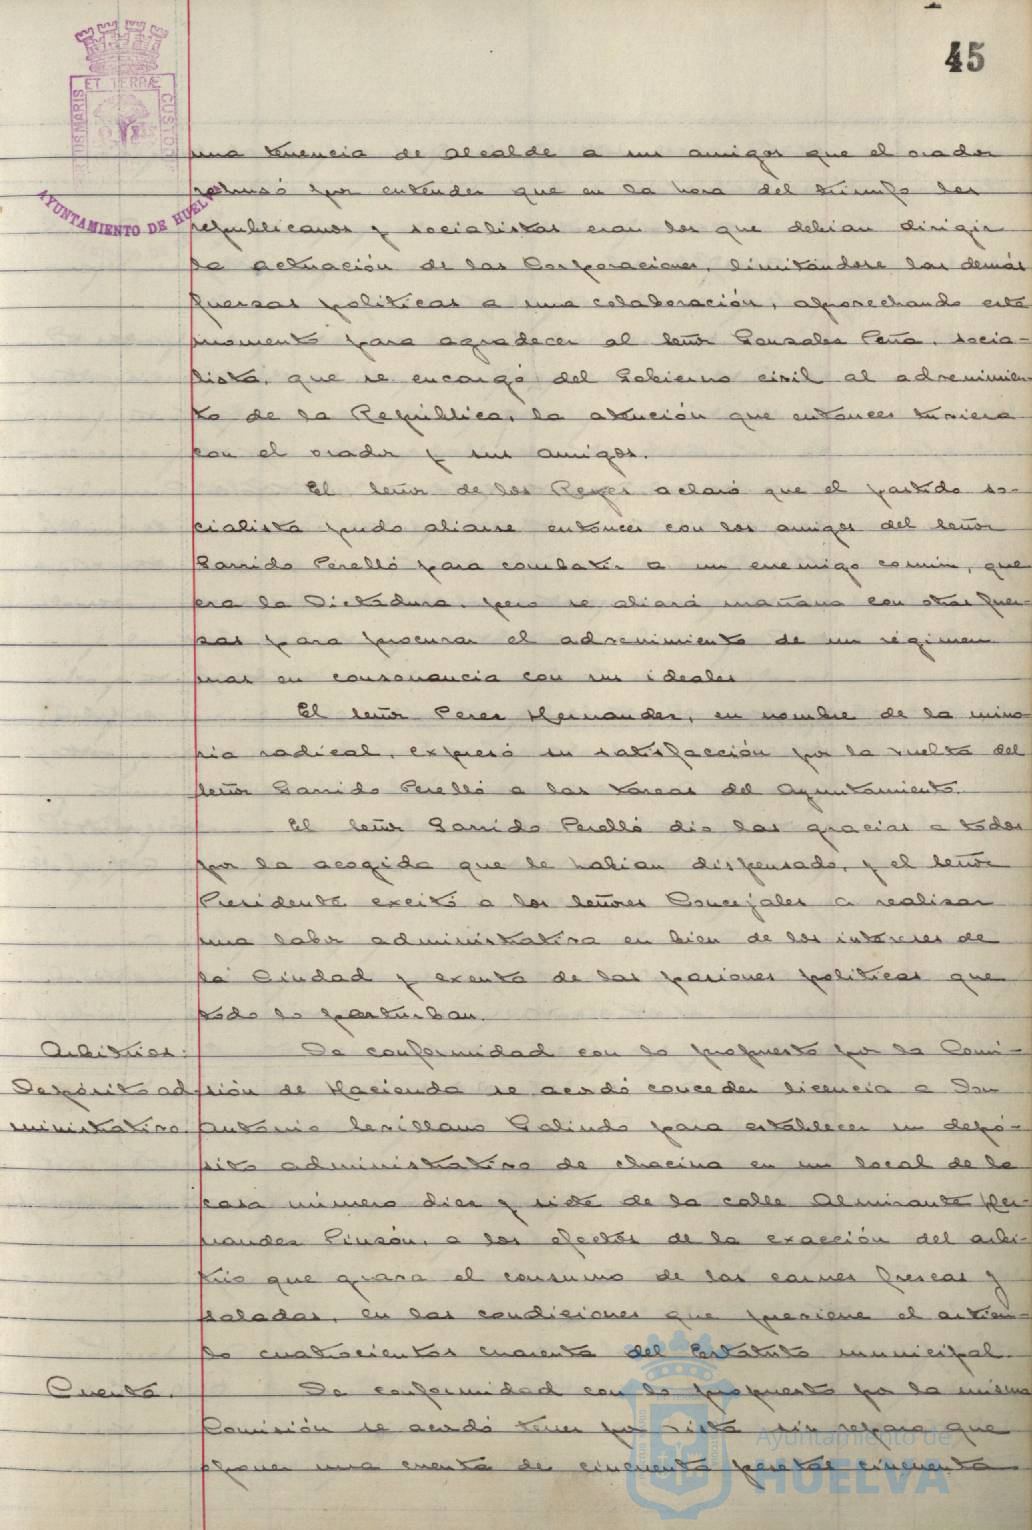 45
ET TERRÆ
PORTUS MARIS
CUSTODIA
AYUNTAMIENTO DE HUELVA
una tenencia de Alcalde a sus amigos que el orador
rehusó por entender que en la hora del triunfo los
republicanos y socialistas eran los que debian dirigir
la actuación de las Corporaciones, limitándose las demás
fuerzas politicas a una colaboración, aprovechando este
momento para agradecer al señor Gonzalez Peña, socia-
lista, que se encargó del Gobierno civil al advenimien-
to de la República, la atención que entonces tuviera
con el orador y sus amigos.
El señor de los Reyes aclaró que el partido so-
cialista pudo aliarse entonces con los amigos del señor
Garrido Perelló para combatir a un enemigo comun, que
era la Dictadura, pero se aliará mañana con otras fuer-
zas para procurar el advenimiento de un régimen
mas en consonancia con sus ideales
El señor Perez Hernandez, en nombre de la mino-
ria radical, expresó su satisfacción por la vuelta del
señor Garrido Perelló a las tareas del Ayuntamiento.
El señor Garrido Perelló dio las gracias a todos
por la acogida que le habian dispensado, y el señor
Presidente excitó a los señores Concejales a realizar
una labor administrativa en bien de los intereses de
la Ciudad y exenta de las pasiones politicas que
todo lo perturban.
Arbitrios: De conformidad con lo propuesto por la Comi-
Depósito ad sión de Hacienda se acordó conceder licencia a Don
ministrativo. Antonio Sevillano Galindo para establecer un depó-
sito administrativo de chacina en un local de la
casa número diez y siete de la calle Almirante Her-
nandez Pinzón, a los efectos de la exacción del arbi-
trio que grava el consumo de las carnes frescas y
saladas, en las condiciones que previene el articu-
lo cuatrocientos cuarenta del Estatuto municipal.
Cuenta. De conformidad con lo propuesto por la misma
Comisión se acordó tener por vista sin reparo que
oponer una cuenta de cincuenta pesetas cincuenta
Ayuntamiento de
HUELVA